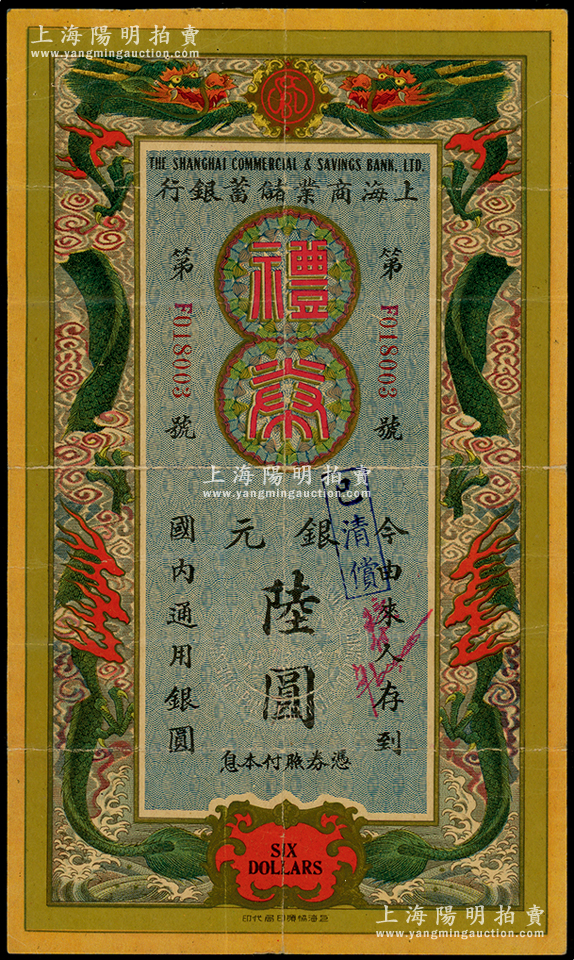 上海陽明拍賣
www.yangmingauction.com
THE SHANGHAI COMMERCIAL & SAVINGS BANK, LTD.
行銀蓄儲業商海上
禮
券
第 F018003 號
第 F018003 號
上海陽明拍賣
www.yangmingauction.com
今由來人存到
銀元
陸圓
國內通用銀圓
已清償
憑券照付本息
SIX
DOLLARS
上海陽明拍賣
www.yangmingauction.com